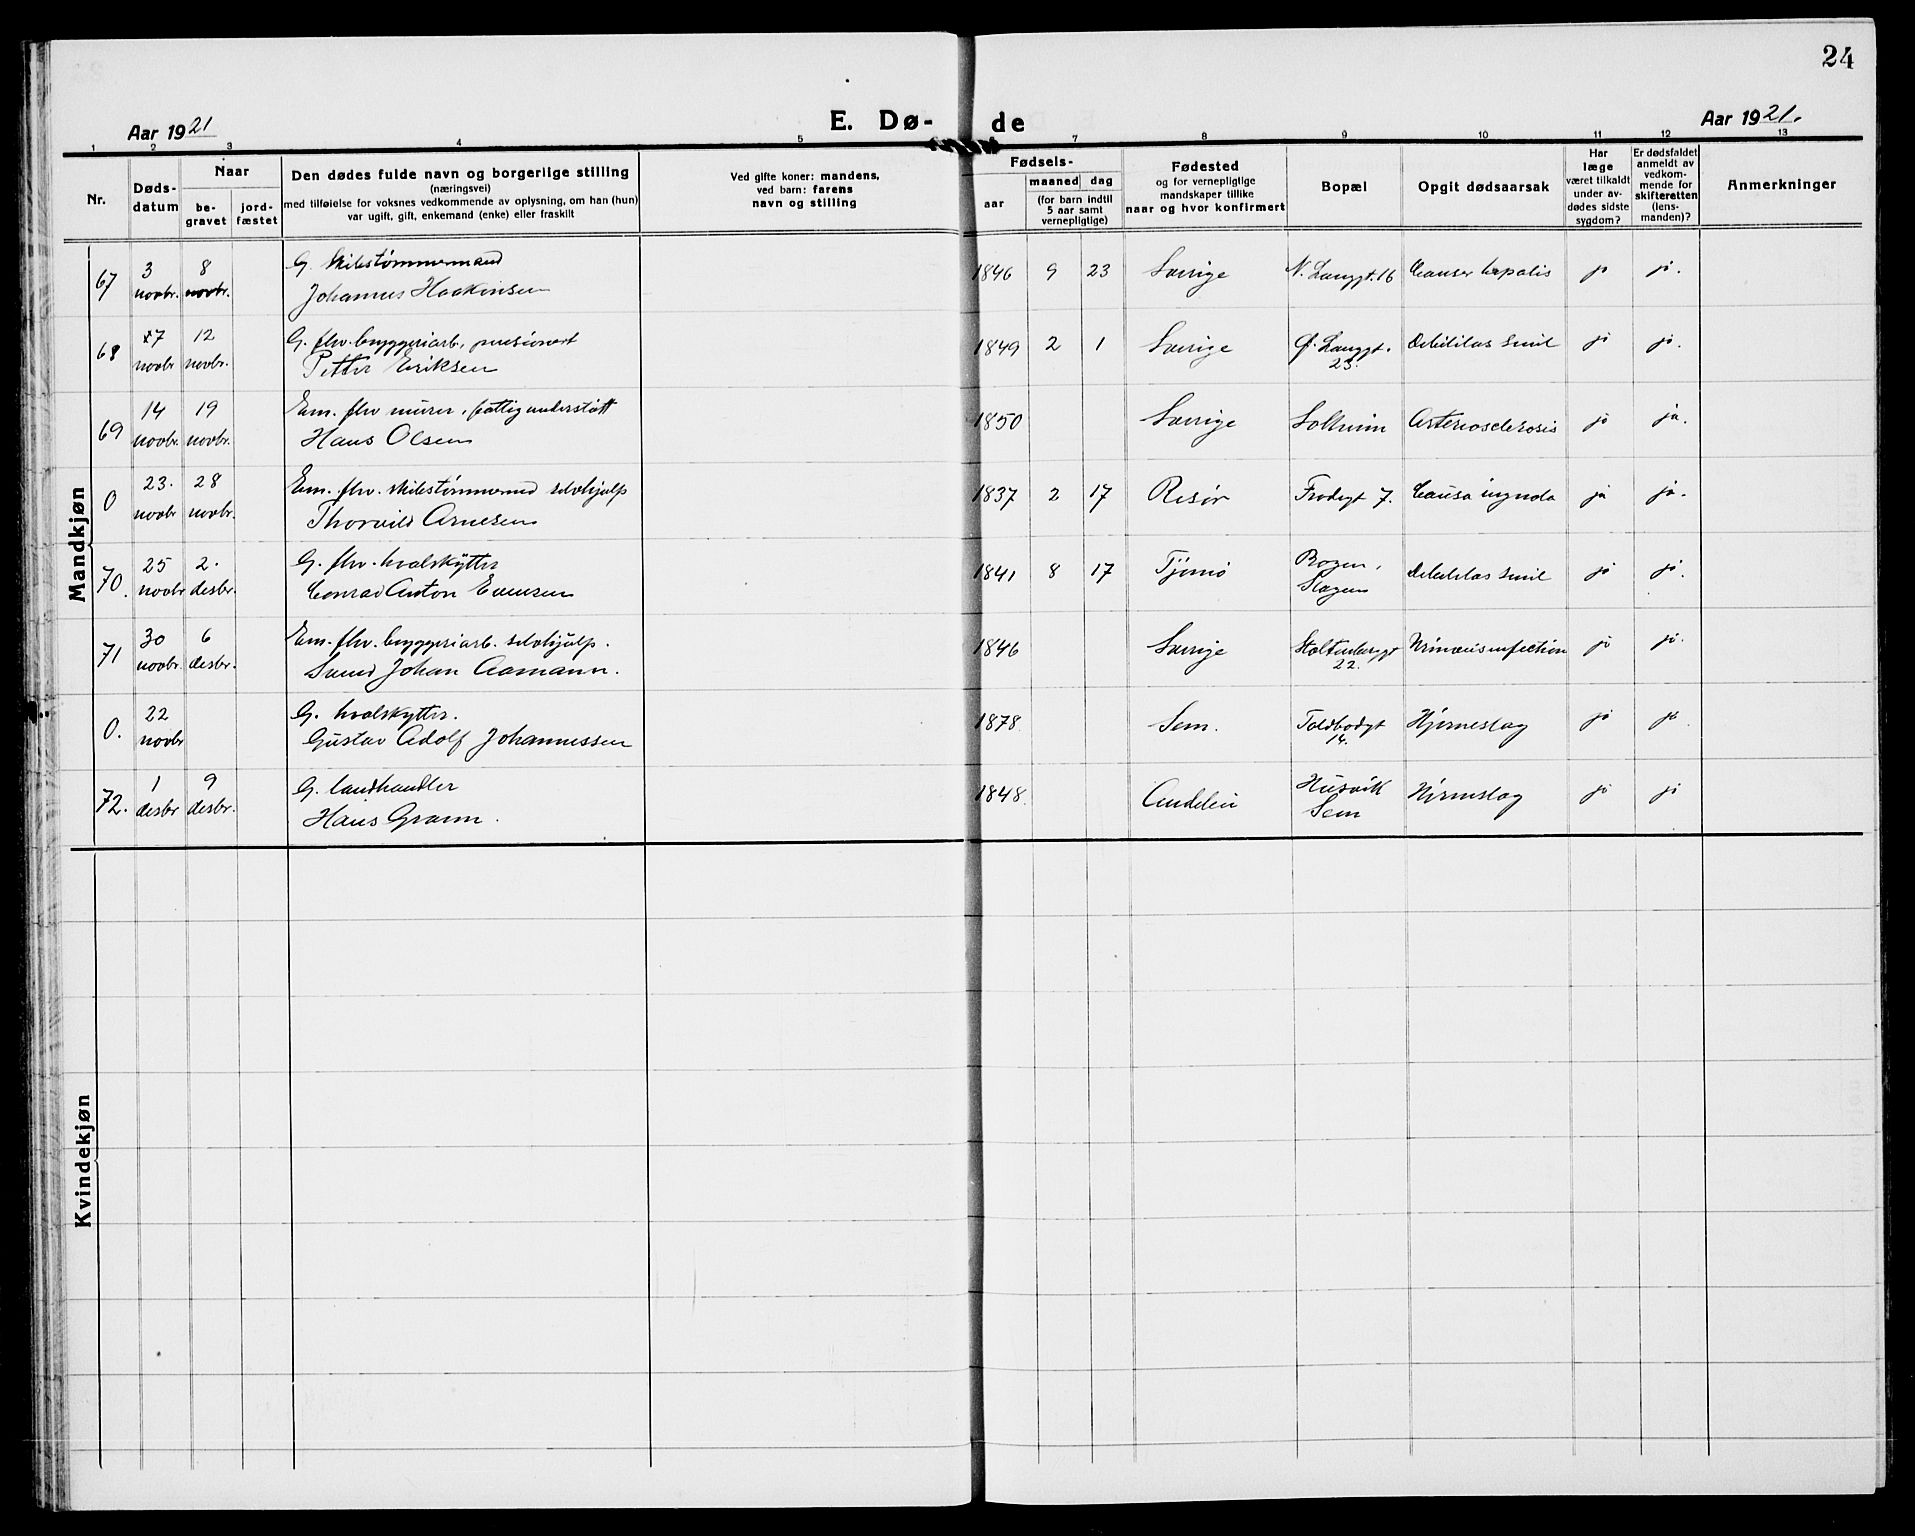 24
Aar 1921
E. Dø-
de
Aar 1921.
1 2 3 4 5 7 8 9 10 11 12 13
Nr.
Døds-
datum
Naar
be-
gravet
jord-
fæstet
Den dødes fulde navn og borgerlige stilling
(næringsvei)
med tilføielse for voksnes vedkommende av oplysning, om han (hun)
var ugift, gift, enkemand (enke) eller fraskilt
Ved gifte koner: mandens,
ved barn: farens
navn og stilling
Fødsels-
aar
maaned dag
(for barn indtil
5 aar samt
vernepligtige)
Fødested
og for vernepligtige
mandskaper tillike
naar og hvor konfirmert
Bopæl
Opgit dødsaarsak
Har
læge
været tilkaldt
under av-
dødes sidste
sygdom?
Er dødsfaldet
anmeldt av
vedkom-
mende for
skifteretten
(lens-
manden)?
Anmerkninger
Mandkjøn
67 3 8 G. Skibstømmermand
novbr. novbr. Johannes Haakinsen 1846 9 23 Sverige N. Langgt. 16 Cancer hepatis ja ja.
68 7 12 G. fhv. bryggeriarb, pensionert
novbr novbr. Petter Eriksen 1849 2 1 Sverige Ø. Langgt. Debilitas senil ja ja.
23.
69 14 19 Em. fhv murer, fattigunderstøtt
novbr. novbr. Hans Olsen 1850 Sverige Solheim Arteriosclerosis ja ja.
0 23. 28 Em. fhv. skibstømmermd selvhjulp
novbr novbr. Thorvild Arnesen 1837 2 17 Risør Frodegt 7. Causa ja ja.
70. 25 2. G. fhv. hvalskytter
novbr desbr. Conrad Anton Evensen 1841 8 17 Tjømø Bogen, Debilitas senil ja ja.
Slagen
71 30 6 Em. fhv. bryggeriarb. selvhjulp.
novbr. desbr. Svend Johan Aamann. 1846 Sverige Stoltenbergt Urinveisinfection ja ja.
22.
0. 22 G. hvalskytter.
novbr Gustav Adolf Johannessen 1878 Sem. Toldbodgt Hjerneslag ja ja.
14.
72. 1 9 G. landhandler
desbr desbr. Hans Gramn. 1848. Andebu Husvik Hjerneslag ja ja
Sem
Kvindekjøn